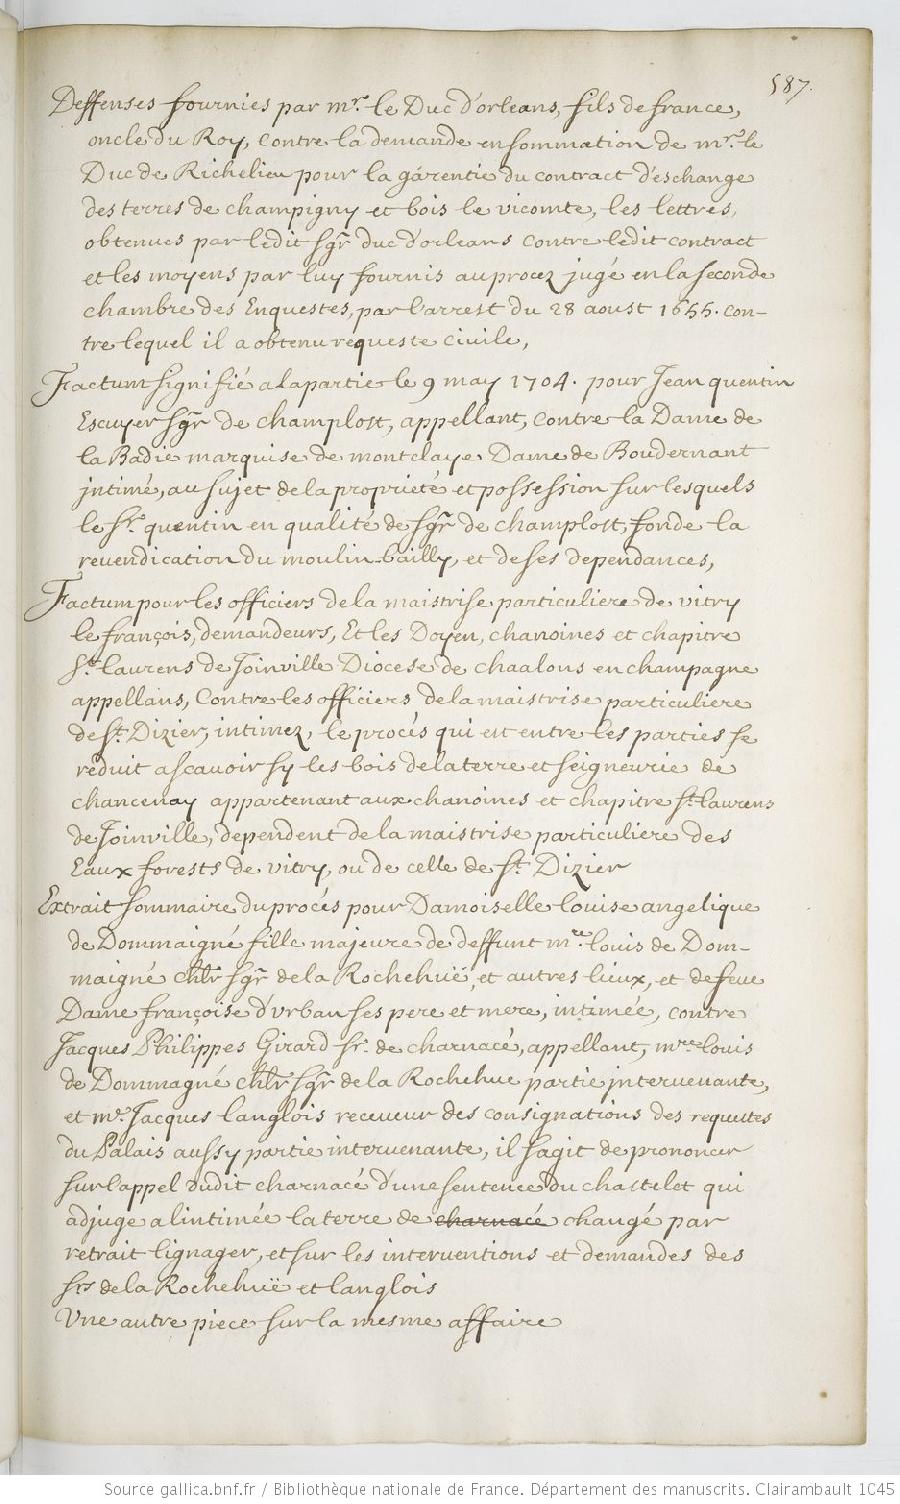 587.
Deffenses fournies par mr. le Duc d'orleans, fils de france,
oncle du Roy, contre la demande en sommation de mr. le
Duc de Richelieu pour la garentie du contract d'eschange
des terres de champigny et bois le vicomte, les lettres,
obtenues par ledit sgr duc d'orleans contre ledit contract
et les moyens par luy fournis au procez jugé en la seconde
chambre des Enquestes, par l'arrest du 28 aoust 1655. con-
tre lequel il a obtenu requeste civile,
Factum signifié a la partie le 9 may 1704. pour Jean quentin
Escuyer sgr de champlost, appellant, contre la Dame de
la Badie marquise de montclaye Dame de Boudernant
jntimé, au sujet de la proprieté et possession sur lesquels
le sr. quentin en qualité de sgr de champlost, fonde la
reuendication du moulin bailly, et de ses dependances,
Factum pour les officiers de la maistrise particuliere de vitry
le françois, demandeurs, Et les Doyen, chanoines et chapitre
st. laurens de Joinville Diocese de chaalons en champagne
appellans, Contre les officiers de la maistrise particuliere
de st. Dizier, intimez, le procés qui est entre les parties se
reduit a scauoir sy les bois de la terre et seigneurie de
chancenay appartenant aux chanoines et chapitre st. laurens
de Joinville, dependent de la maistrise particuliere des
Eaux forests de vitry, ou de celle de st. Dizier
Extrait sommaire du procés pour Damoiselle louise angelique
de Dommaigné fille majeure de deffunt mre. louis de Dom-
maigné chlr sgr de la Rochehuë, et autres lieux, et de feue
Dame françoise d'vrban ses pere et mere, intimée, contre
Jacques Philippes Girard sr. de charnacé, appellant, mre louis
de Dommagné chlr sgr de la Rochehue partie jntervenante,
et me. Jacques langlois receueur des consignations des requestes
du Palais aussy partie intervenante, il s'agit de prononcer
sur l'appel dudit charnacé d'une sentence du chastelet qui
adjuge a l'intimée la terre de charnacé changé par
retrait lignager, et sur les interventions et demandes des
srs de la Rochehuë et langlois
Vne autre piece sur la mesme affaire
Source gallica.bnf.fr / Bibliothèque nationale de France. Département des manuscrits. Clairambault 1045